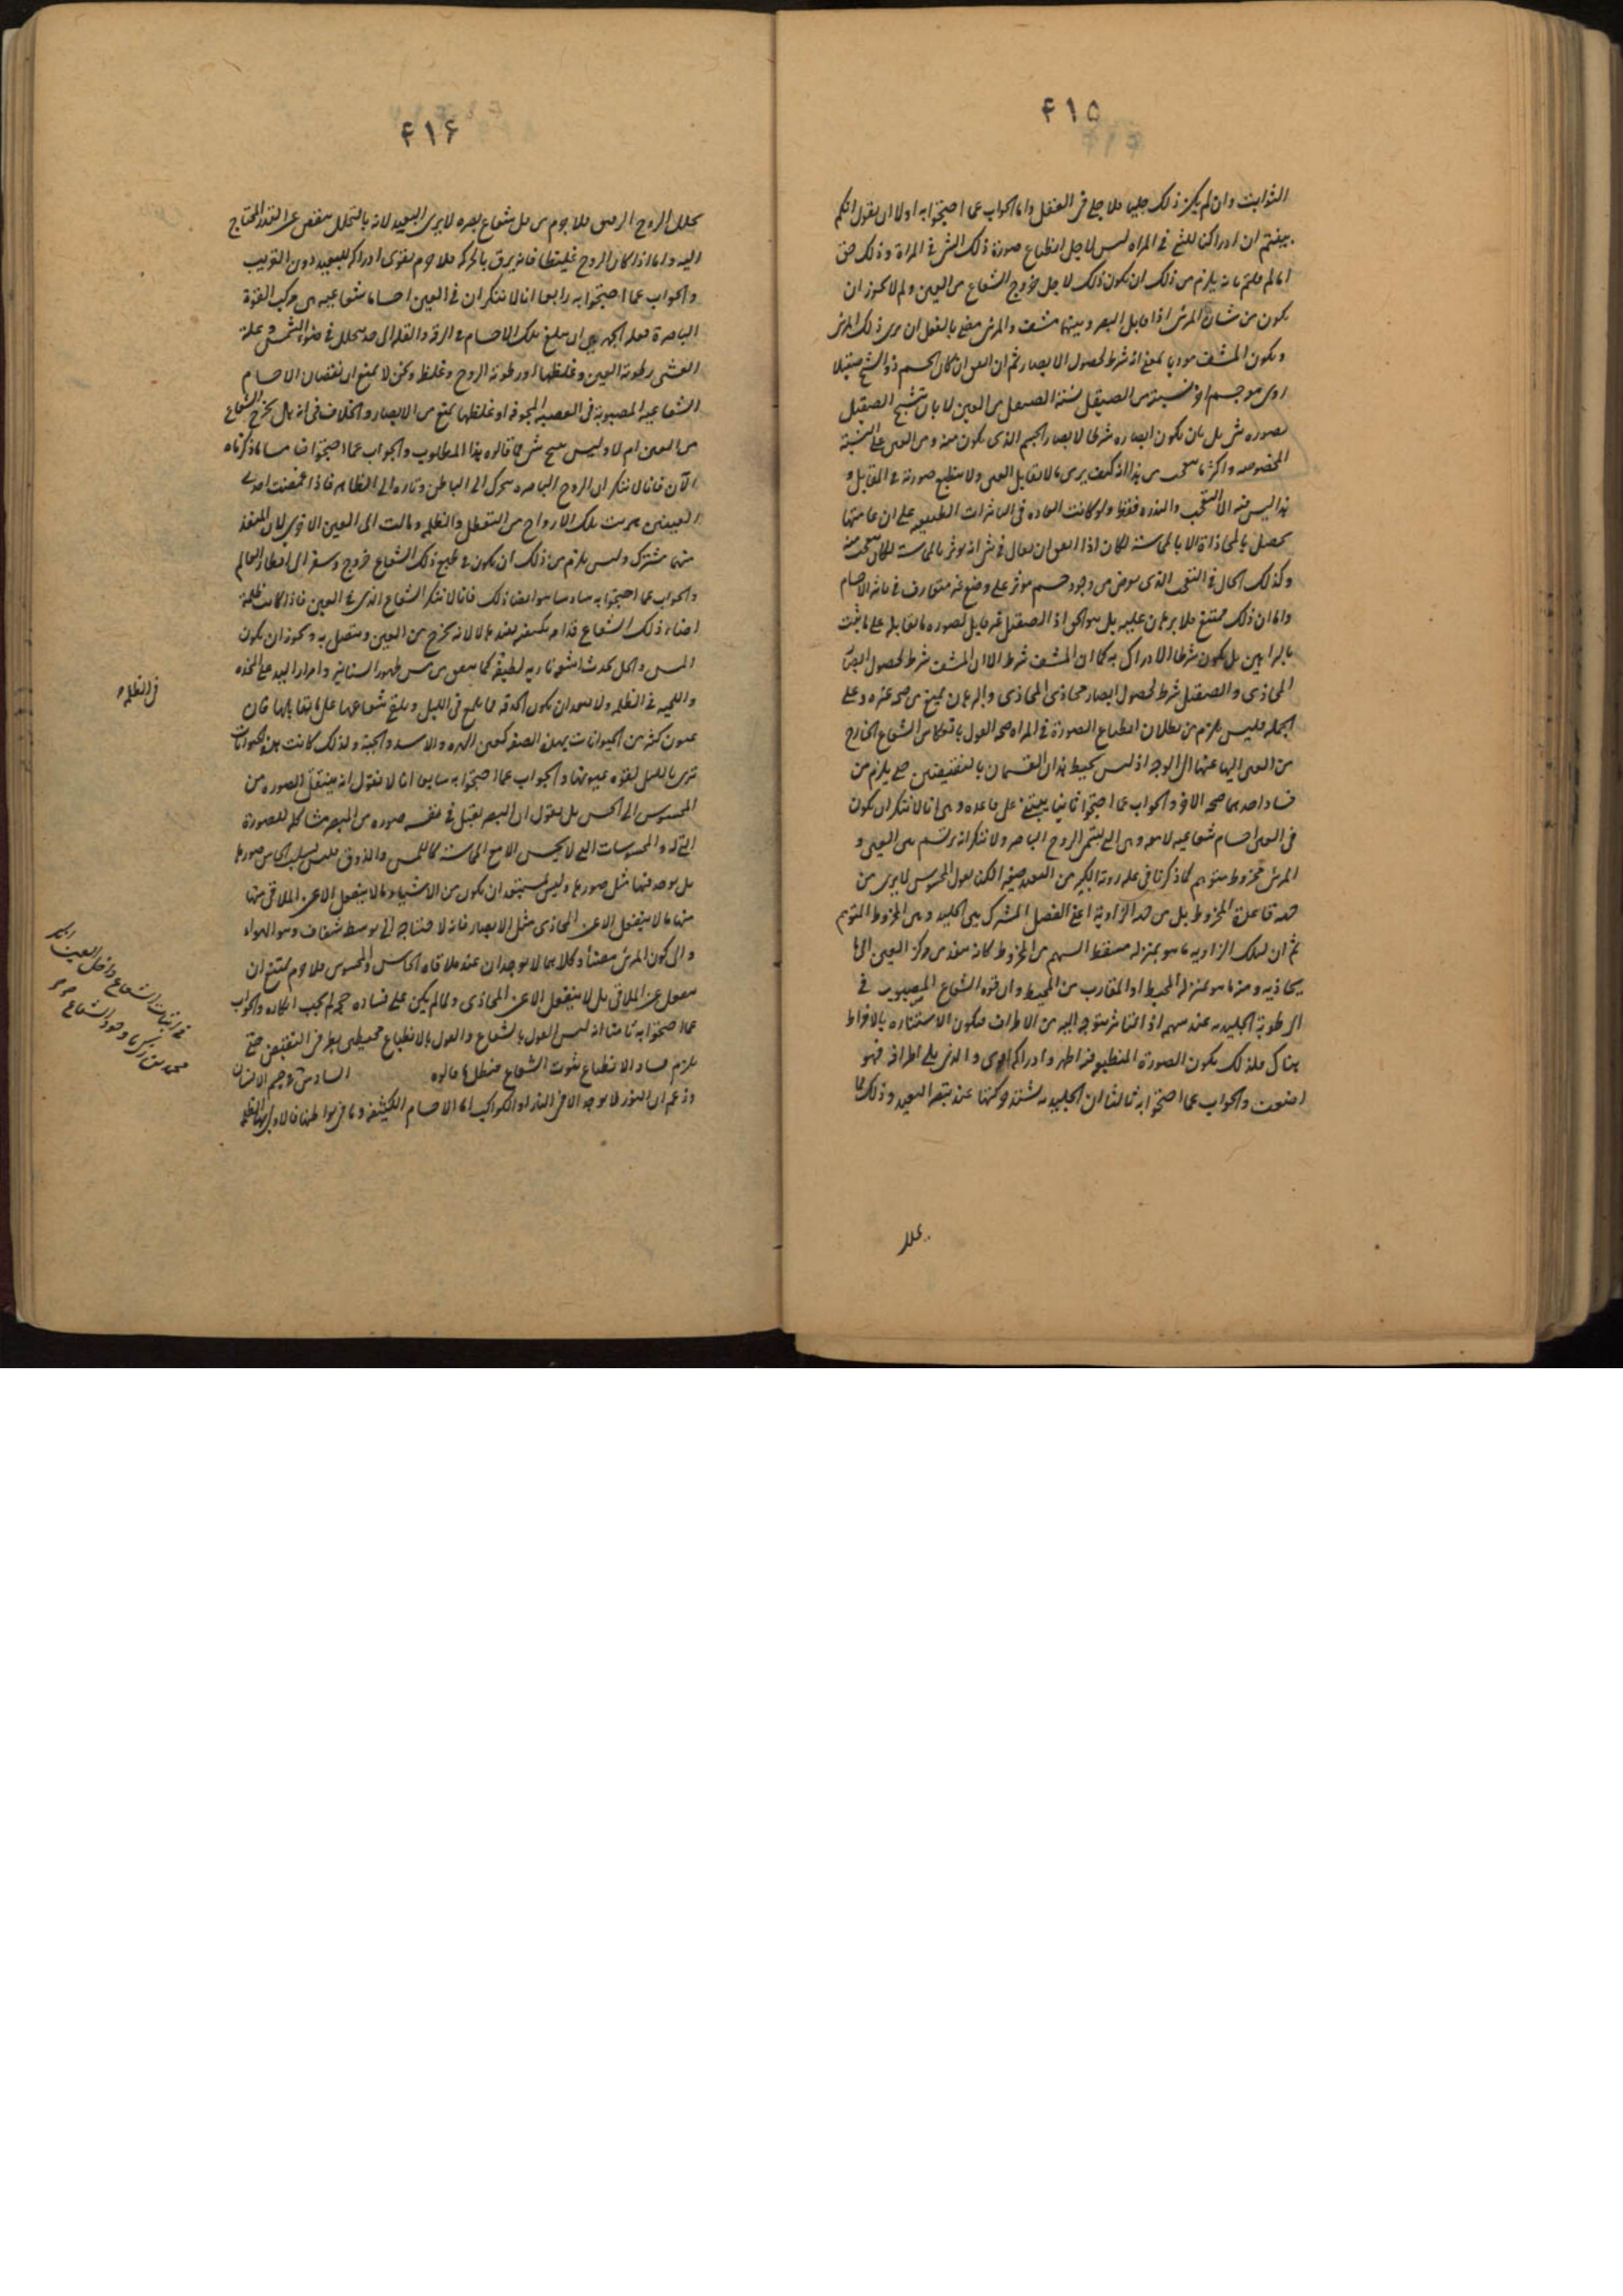 ۴۱۵
الثوابت وان لم يكن ذلك جليا فلا جلي في العقل واما الجواب عما احتجوا به اولا ان نقول انكم
بينتم ان ادراكنا للشئ في المراه ليس لاجل انطباع صورة ذلك الشئ في المراة وذلك حق
انا لم قلتم بانه يلزم من ذلك ان يكون ذلك لاجل خروج الشعاع من العين ولم لا يجوز ان
يكون من شان المرئى اذا قابل البصر وبينهما مشف والمرئى مضئ بالفعل ان يرى ذلك المرئى
ويكون المشف موديا بمعنى انه شرط لحصول الابصار ثم ان اتفق ان كان الجسم ذو الشبح صقيلا
روى مع جسم اخر نسبته من الصقيل نسبة الصقيل من العين لا بان يتشبح الصقيل
بصورة شئ بل بان يكون ابصاره شرطا لابصار الجسم الذى يكون منه ومن العين على النسبة
المخصوصه واكثر ما يتعجب من هذا انه كيف يرى ما لا يقابل العين ولا ينطبع صورته فى المقابل و
هذا ليس فيه الا التعجب والندره فقط ولو كانت العاده فى التاثيرات الطبيعيه على ان عامتها
يحصل بالمحاذاة لا بالمماسة لكان اذا اتفق ان يقال في شئ انه يوثر بالمماسة لكان يتعجب منه
وكذلك الحال في التعجب الذى يعرض من وجود جسم موثر على وضع غير متعارف في تاثير الاجسام
واما ان ذلك ممتنع فلا برهان عليه بل هو الحق اذ الصقيل غير قابل لصورة ما يقابله على ما ثبت
بالبراهين بل يكون شرطا لادراك به كما ان المشف شرط الا ان المشف شرط لحصول ابصار
المحاذى والصقيل شرط لحصول ابصار محاذى المحاذى والبرهان يمنع من صحة غيره وعلى
الجمله فليس يلزم من بطلان انطباع الصورة في المراه صحه القول بانعكاس الشعاع الخارج
من العين اليها عنها الى الوجه اذ ليس يحيط هذان القسمان بالنقيضين حتى يلزم من
فساد احدهما صحه الاخر والجواب عما احتجوا ثانيا يبتنى على قاعده وهى انا لا ننكر ان يكون
فى العين اجسام شعاعيه لامعه وهى التى يسمى الروح الباصر ولا ننكر انه يرتسم بين العين و
المرئى مخروط متوهم كما ذكرنا فى علة روية الكبير من البعيد صغيرا لكنا نقول المحسوس لا يرى من
حد قاعدة المخروط بل من حد الزاوية اعنى الفصل المشترك بين الجليديه وبين المخروط المتوهم
ثم ان لتلك الزاويه ما هو بمنزله مسقط السهم من المخروط كانه ينفذ من مركز العين الى ما
يحاذيه ومنه ما هو بمنزله المحيط او المقارب من المحيط وان قوة الشعاع المصبوب في
الرطوبة الجليديه عند سهمه اذ التاثير متوجه اليه من الاطراف فيكون الاستناره بالافراط
هناك فلذلك يكون الصورة المنطبعه فيه اظهر وادراكه اقوى والذى يلى اطرافه فهو
اضعف والجواب عما احتجوا به ثالثا ان الجليديه يشتد حركتها عند تبصر البعيد وذلك مما
يحلل
۴۱۶
يحلل الروح الرقيق فلا جرم من قل شعاع بصره لا يرى البعيد لانه بالتحلل ينقص عن القدر المحتاج
اليه واما اذا كان الروح غليظا فانه يرق بالحركه فلا جرم يقوى ادراكه للبعيد دون القريب
والجواب عما احتجوا به رابعا انا لا ننكر ان في العين اجساما شعاعيه هى مركب القوة
الباصرة فعله الجهر هى ان يبلغ تلك الاجسام في الرقه والقله الى حد يتحلل في ضوء الشمس وعلة
العشى رطوبة العين وغلظها او رطوبة الروح وغلظه ونحن لا نمنع ان نقصان الاجسام
الشعاعيه المصبوبة فى العصبه المجوفه او غلظها يمنع من الابصار والخلاف فى انه هل يخرج الشعاع
من العين ام لا وليس ينتج شئ مما قالوه هذا المطلوب والجواب عما احتجوا خامسا ما ذكرناه
الآن فانا لا ننكر ان الروح الباصره يتحرك الى الباطن وتاره الى الظاهر فاذا غمضت احدى
العينين هربت تلك الارواح من التعطل والظلمه ومالت الى العين الاخرى لان المنفذ
منهما مشترك وليس يلزم من ذلك ان يكون فى طبع ذلك الشعاع خروج وسفر الى اقطار العالم
والجواب عما احتجوا به سادسا هو ايضا ذلك فانا لا ننكر الشعاع الذى في العين فاذا كانت ظلمة
اضاء ذلك الشعاع قدامه بكيفيه يفيدها لا لانه يخرج من العين ويتصل به ويجوز ان يكون
المس والحك يحدث اشعة ناريه لطيفه كما يتفق من مس ظهور السنانير وامرار اليد على المخده
واللحيه فى الظلمه ولا يبعد ان يكون الحدقه مما يلمع فى الليل ويلقى شعاعها على ما يقابلها فان
عيون كثير من الحيوانات بهذه الصفه كعين الهره والاسد والحية ولذلك كانت هذه الحيوانات
ترى بالليل لقوة عيونها والجواب عما احتجوا به سابعا انا لا نقول انه ينتقل الصوره من
المحسوس الى الحس بل نقول ان البصر يقبل في نفسه صوره من المبصر مشاكله للصورة
التى له والمحسوسات التى لا يحس الا مع المماسه كاللمس والذوق فليس يسلب الحاس صورها
بل يوجد فيها مثل صورها وليس يمتنع ان يكون من الاشياء ما لا ينفعل الا عن الملاقى منها
منها ما لا ينفعل الا عن المحاذى مثل الابصار فانه لاحتياجه الى توسط شفاف وهو الهواء
والى كون المرئى مضئا وكلاهما لا يوجدان عند ملاقاة الحاس والمحسوس فلا جرم يمتنع ان
ينفعل عن الملاقى بل لا ينفعل الا عن المحاذى وما لم يكن على فساده حجة لم يجب انكاره والجواب
عما احتجوا به ثامنا انه ليس القول بالشعاع والقول بالانطباع محيطين بطرفى النقيض حتى
يلزم فساد الانطباع ثبوت الشعاع فبطل ما قالوه السادس فى جسم الانسان
وزعم ان النور لا يوجد الا في النار او الكواكب اما الاجسام الكثيفة وما في بواطنها فالاولى بها الظلمه
في الظلمه
في اثبات الشعاع داخل العين
محمد بن زكريا وجود الشعاع